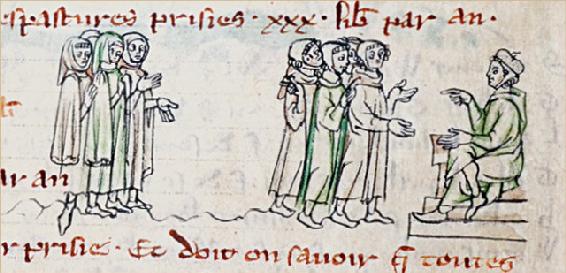 espastures prisies · xxx · lib par an ·
lb
ar an
r prisie · Et doit on savoir q̄ toutes